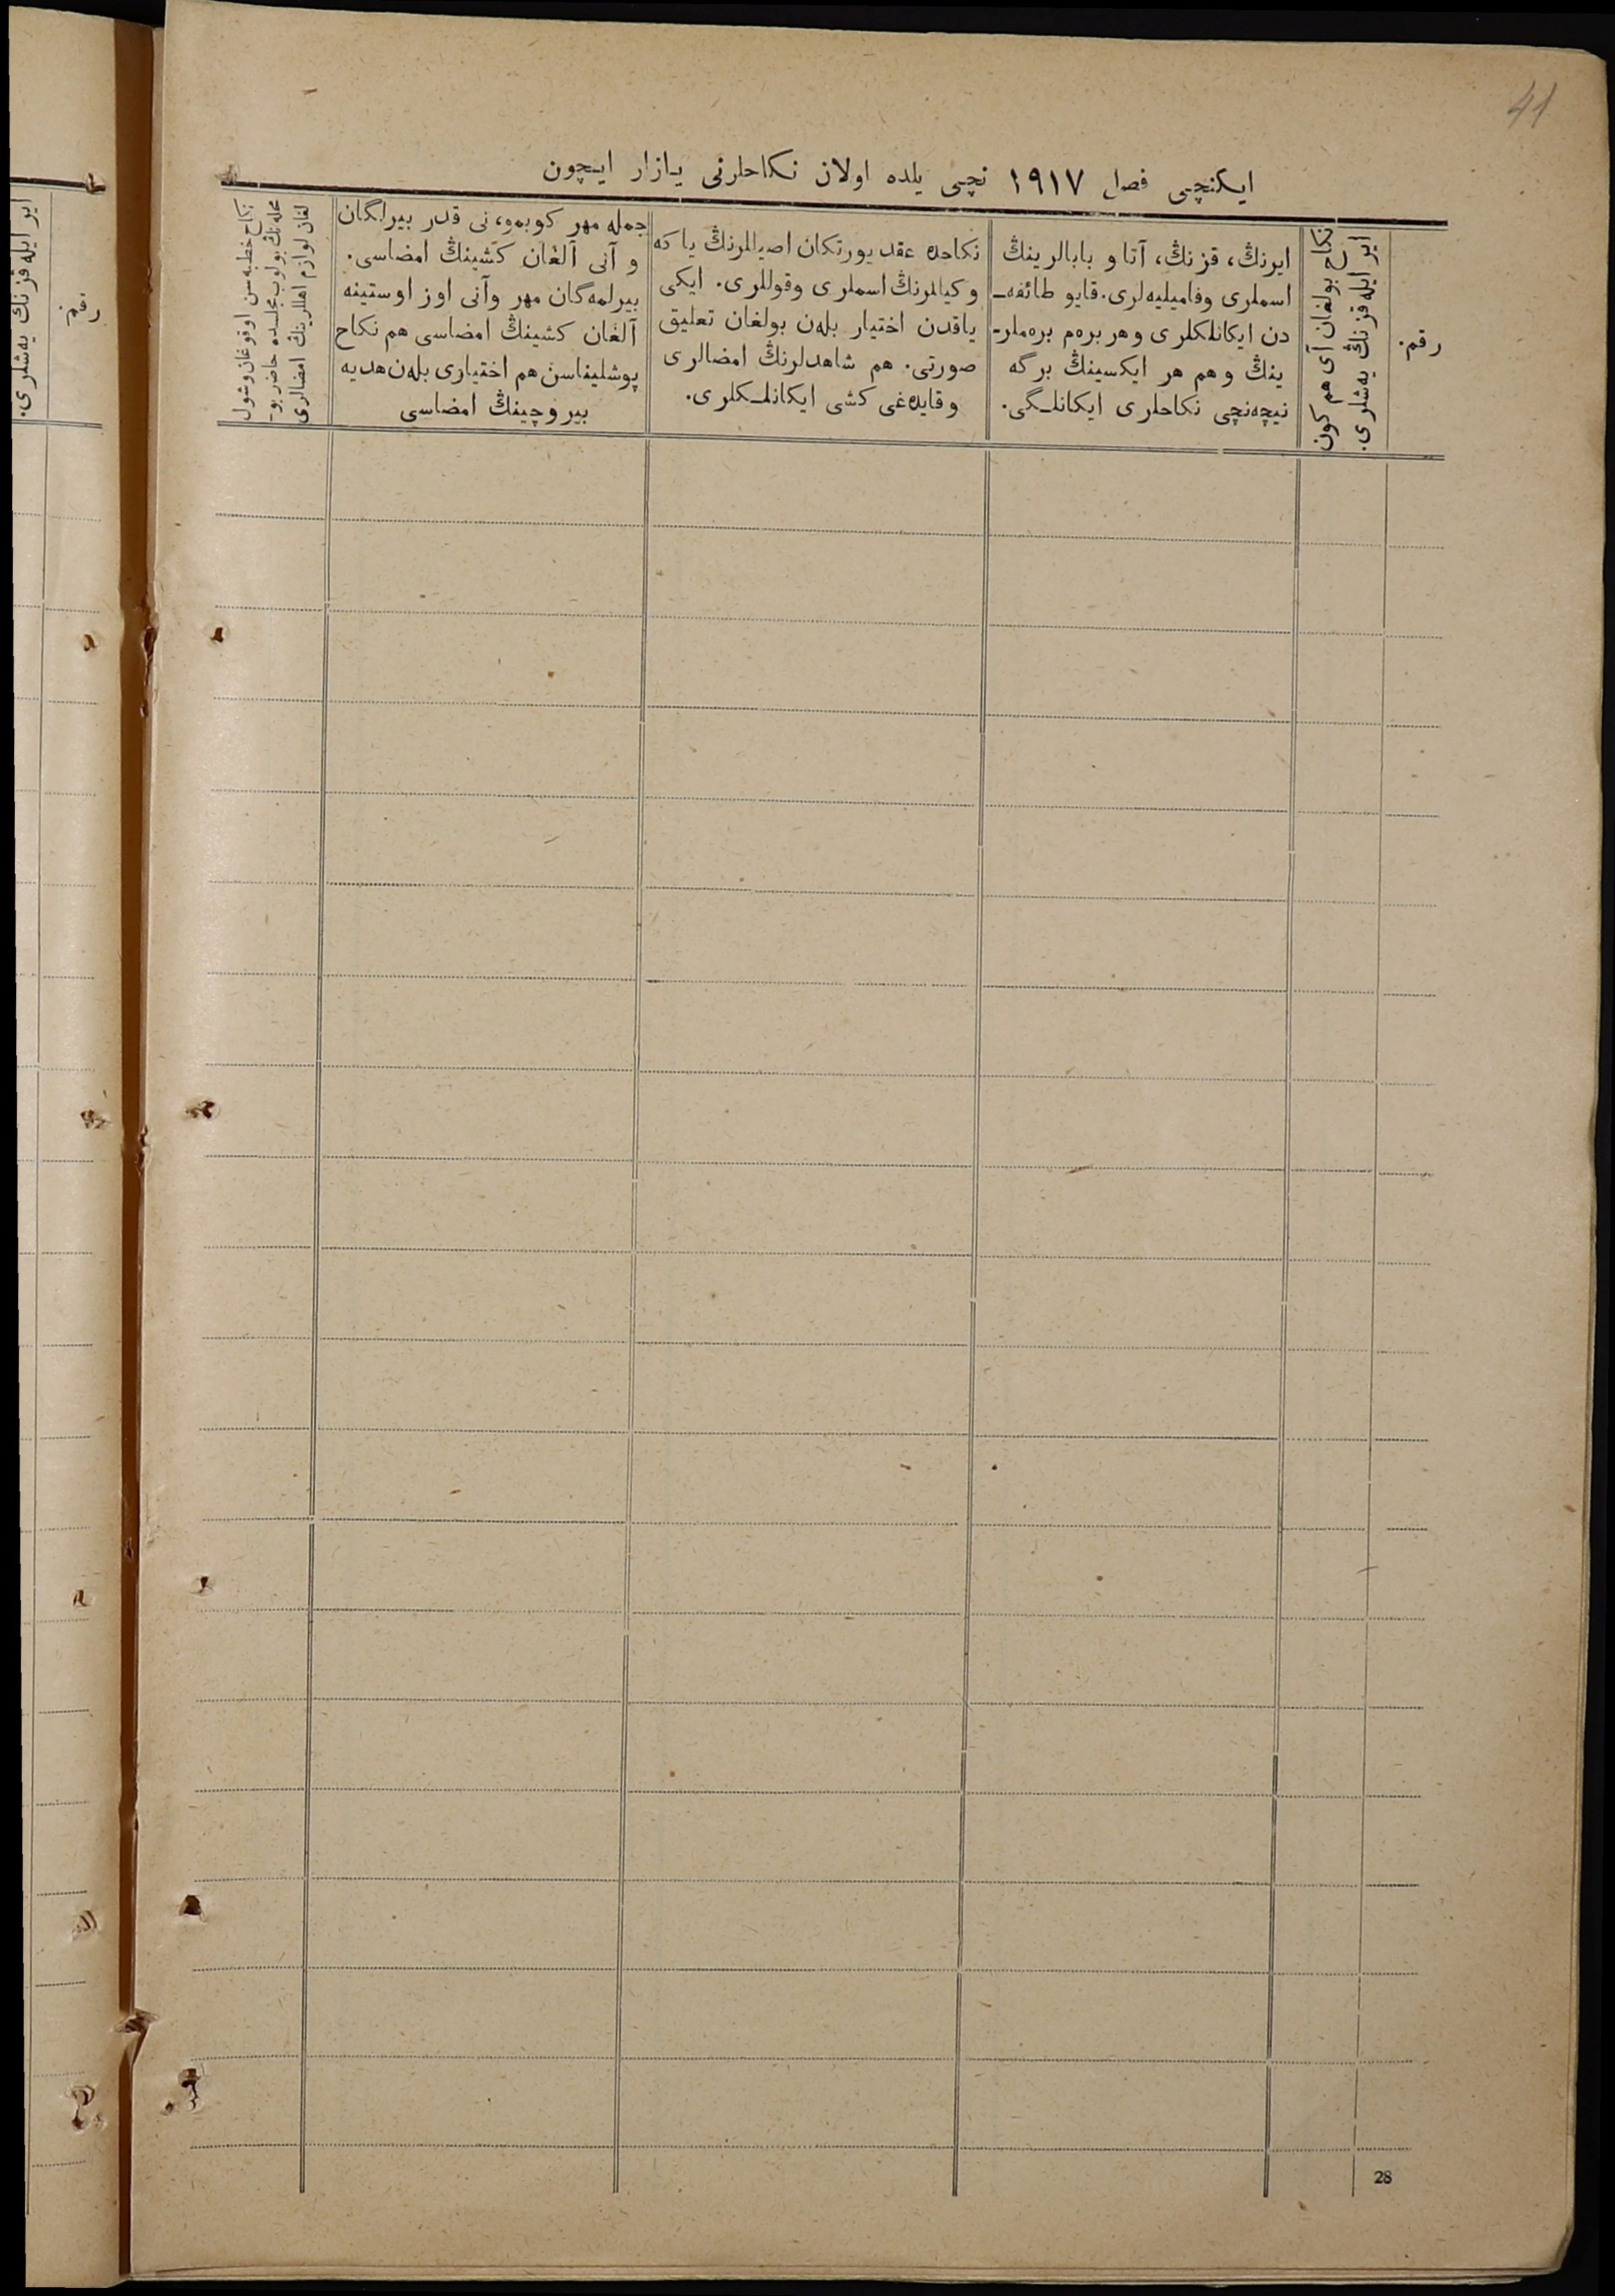 41
ایکنچی فصل ١٩١٧ نچی یلده اولان نکاحلرنی یازار ایچون
رقم.
ایر ایله قزنڭ یەشلری.
نکاح بولغان آی هم کون
ایرنڭ، قزنڭ، آتا و بابالرینڭ
اسملری وفامیلیەلری. قایو طائفه‌ـ
دن ایکانلکلری و هر برەم برەملرـ
ینڭ و هم هر ایکسینڭ برگه
نیچەنچی نکاحلری ایکانلـگی.
نکاحده عقد یورتکان اصیللرنڭ یا که
وکیللرنڭ اسملری وقوللری. ایکی
یاقدن اختیار بلەن بولغان تعلیق
صورتی. هم شاهدلرنڭ امضالری
و قایدەغی کشی ایکانلـکلری.
جمله مهر کوبمو، نی قدر بیرلگان
و آنی آلغان کشینڭ امضاسی.
بیرلمەگان مهر وآنی اوز اوستینه
آلغان کشینڭ امضاسی هم نکاح
پوشلیناسن هم اختیاری بلەن هدیه
بیروچینڭ امضاسی
نکاح خطبەسن اوقوغان وشول
محلەنڭ بولوب مجلسده حاضر بوـ
لغان لوازم اهللرینڭ امضالری
رقم.
ایر ایله قزنڭ یەشلری.
28